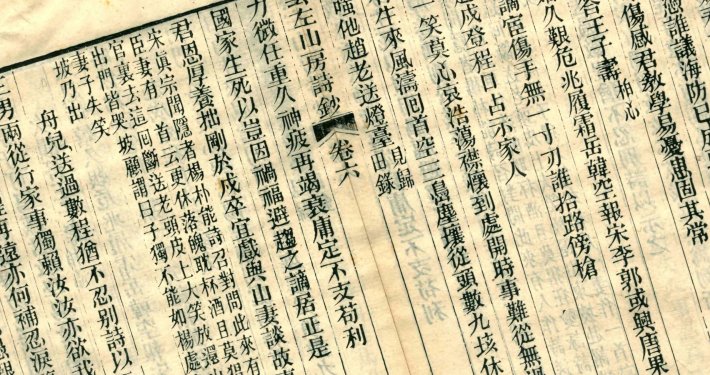 憑誰議海防已成
傷感君教學易憂患固其常
答王子壽柏心
久艱危兆履霜岳韓空報宋李郭或興唐果
論宦傷手無一寸刃誰拾路傍槍
戍登程口占示家人
一笑莫心哀浩蕩襟懷到處開時事難從無
生來風濤回首空三島塵壤從頭數九垓休
嗤他趙老送燈臺見歸田錄
雲左山房詩鈔 卷六
力微任重久神疲再竭衰庸定不支苟利
國家生死以豈因禍福避趨之謫居正是
君恩厚養拙剛於戍卒宜戲與山妻談故
宋真宗聞隱者楊朴能詩召對問此來有
臣妻有一首云更休落魄耽杯酒且莫猖
官裏去這回斷送老頭皮上大笑放還山
出門皆哭坡顧謂曰子獨不能如楊處
妻子失笑
坡乃出
舟兒送過數程猶不忍別詩以
男兩從行家事獨賴汝汝亦欲我
再遠亦何補忍淚